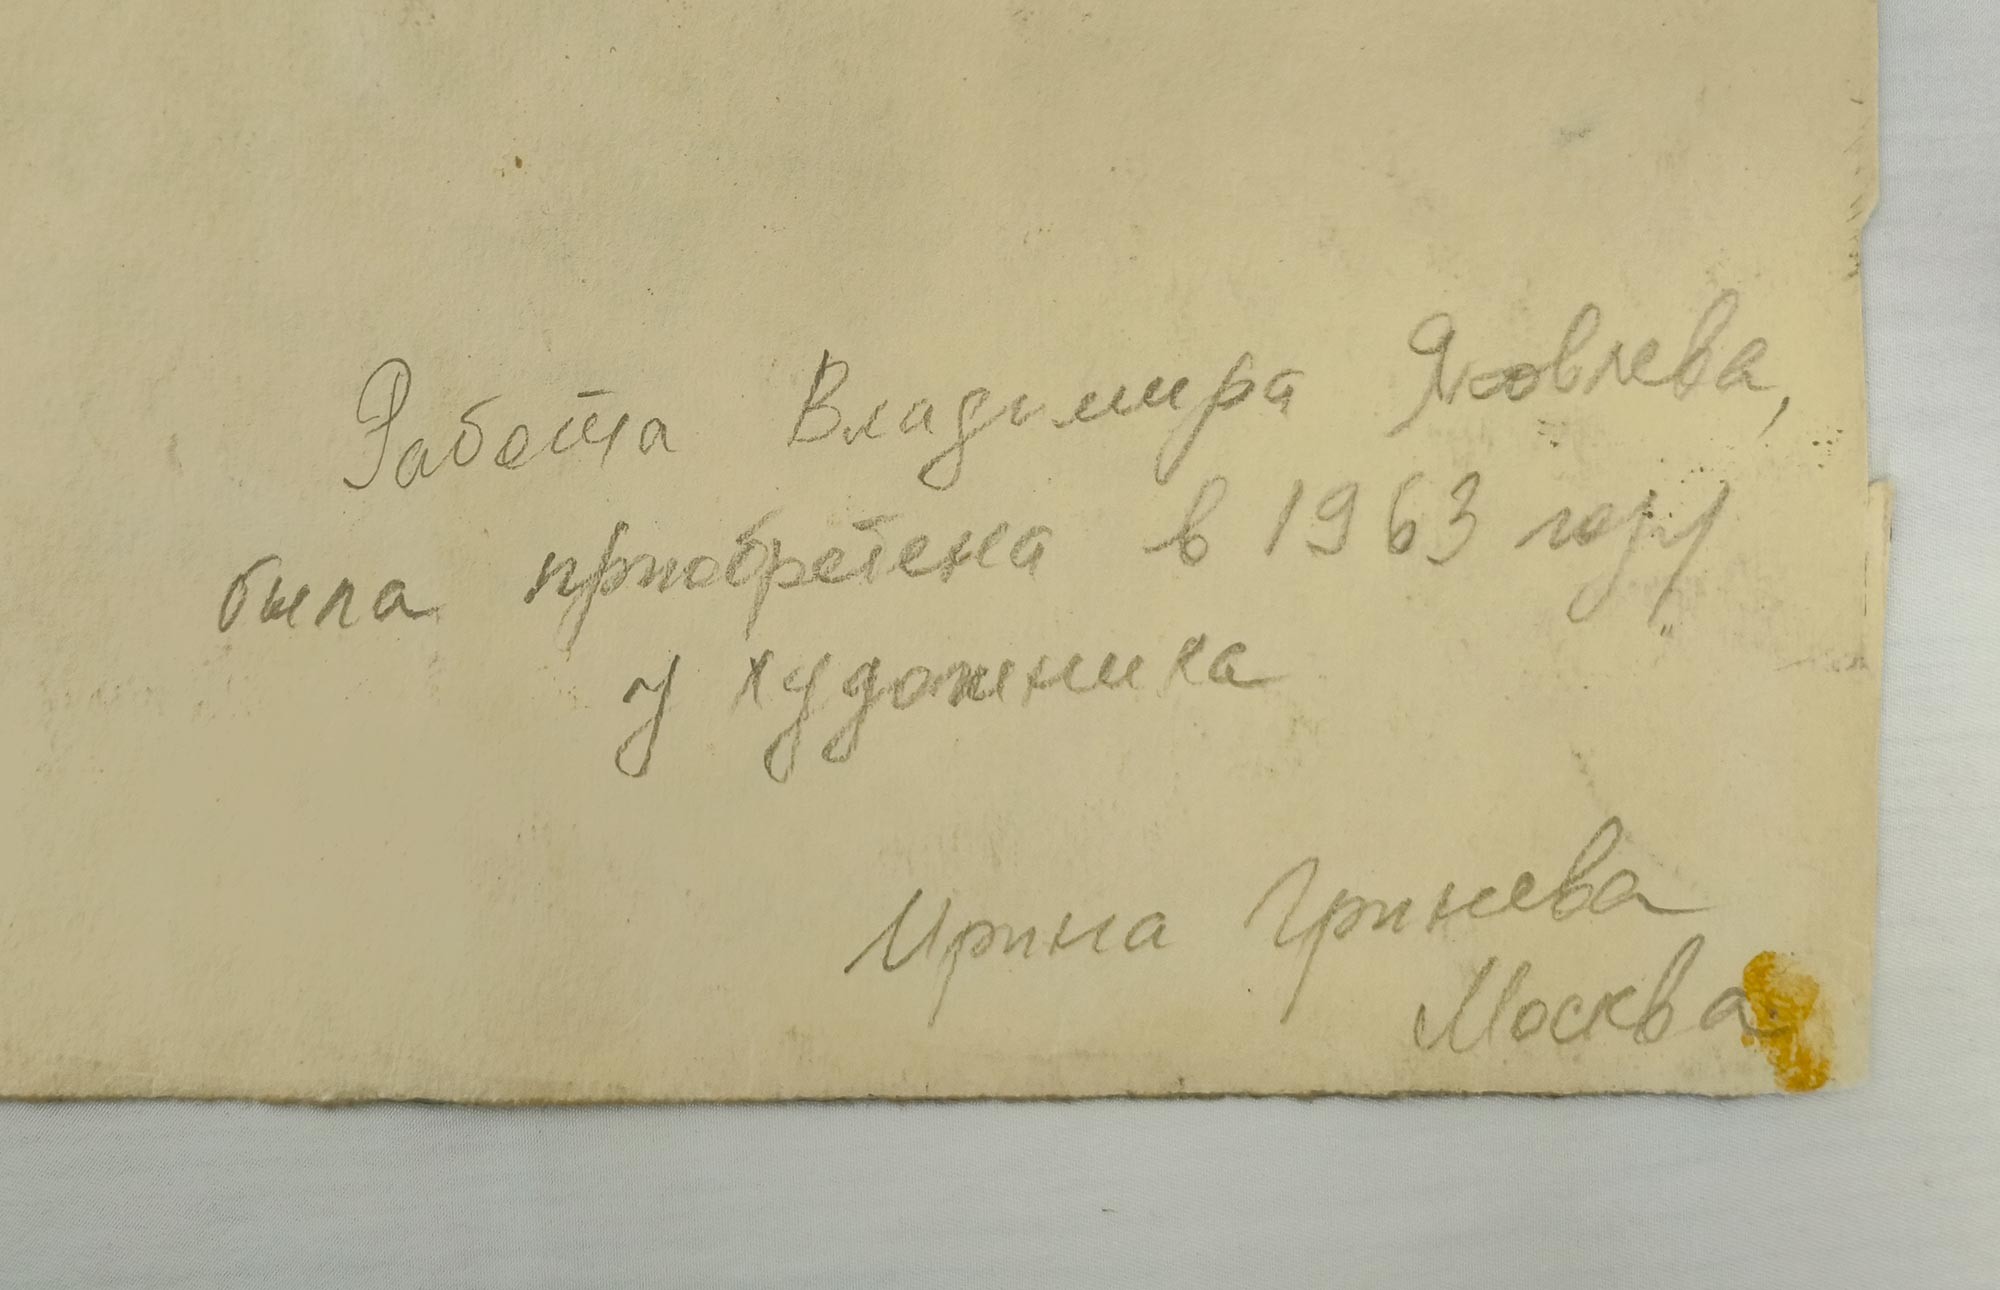 Работа Владимира Яковлева,
была приобретена в 1963 году
у художника
Ирина Гринева
Москва